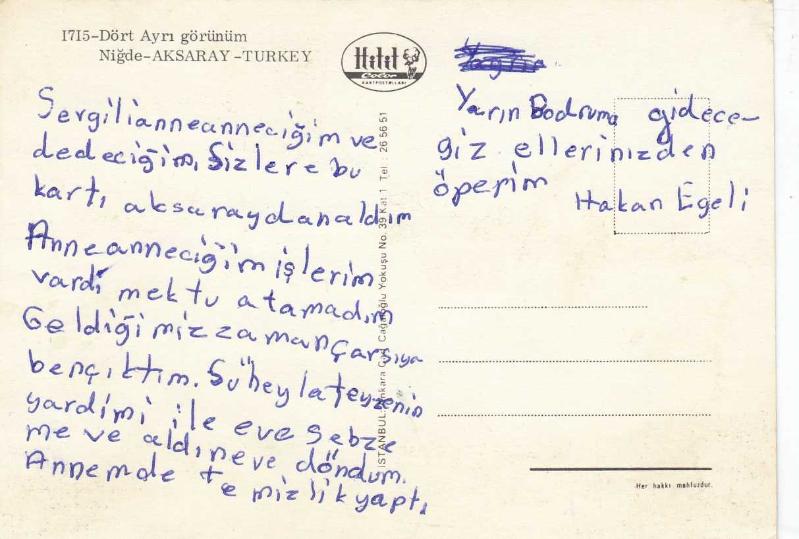 1715-Dört Ayrı görünüm
Niğde-AKSARAY-TURKEY
Hitit
Color
KARTPOSTALLARI
Sergilianneanneciğim ve
dedeciğim, Sizlere bu
kartı aksaraydanaldım
Anneanneciğim işlerim
vardı mektu atamadım
Geldiğimizzamançarsıya
bençıktım. Süheylateyzenin
yardimi ile eve sebze
meve aldıneve döndum.
Annemde temizlikyaptı,
Yarın Bodruma gidece-
giz ellerinizden
öperim
Hakan Egeli
İSTANBUL: Ankara Cad. Cağaloğlu Yokuşu No. 39 Kat 1 Tel : 26 56 51
Her hakkı mahfuzdur.